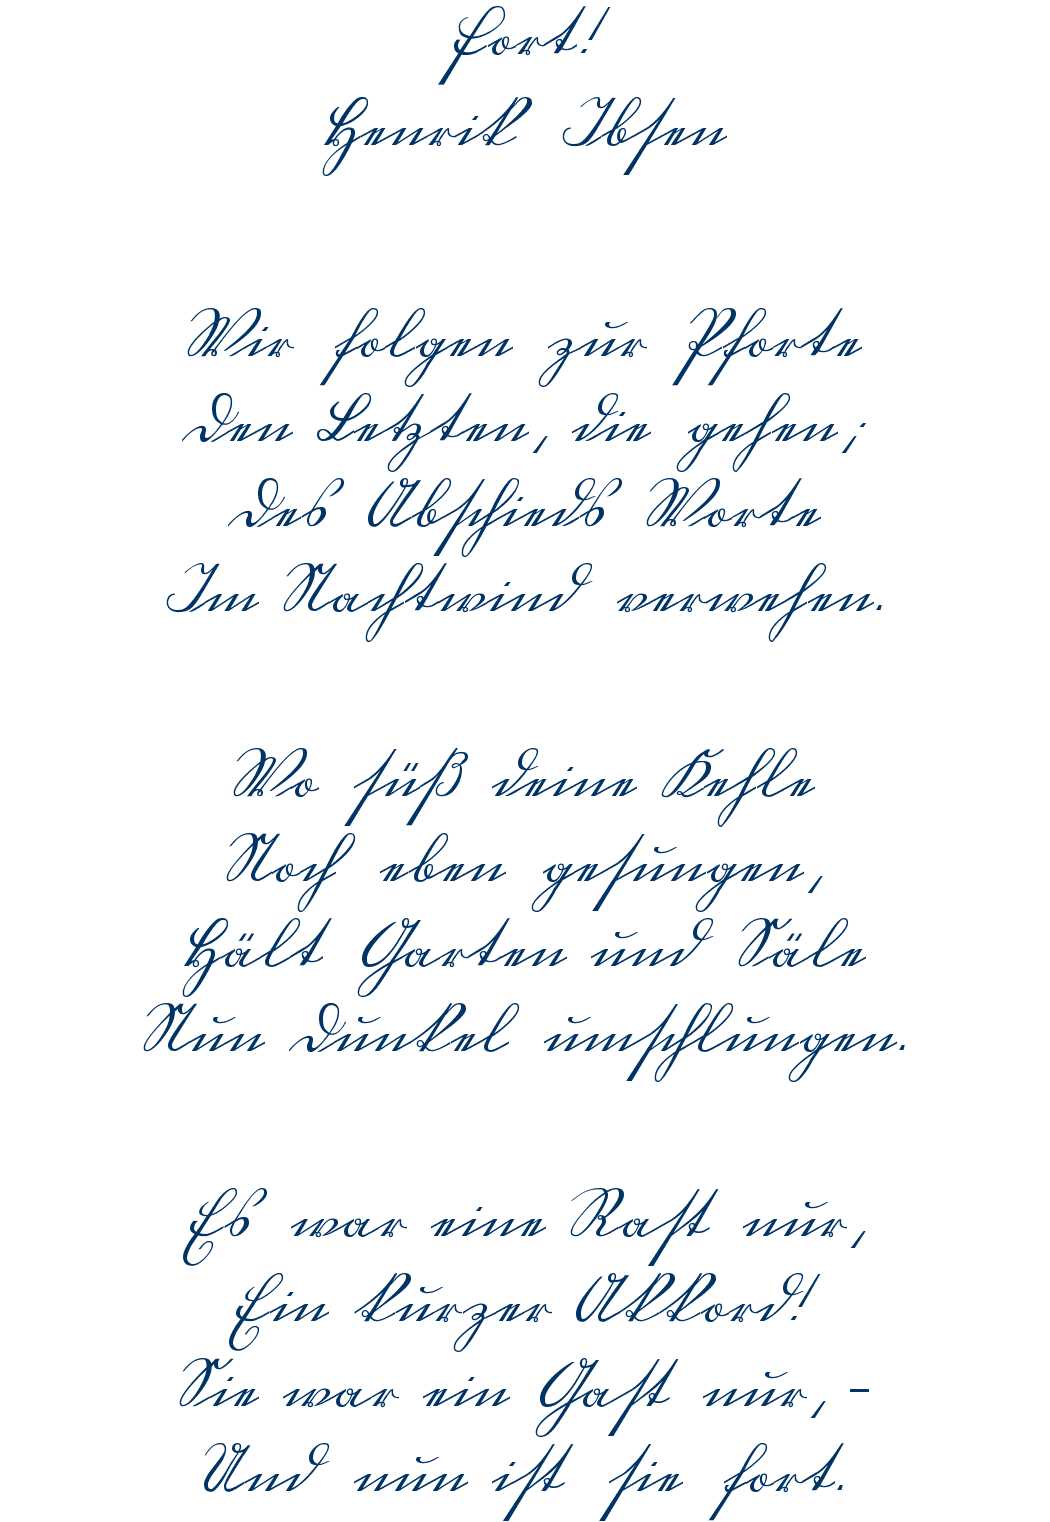 Fort!
Henrik Ibsen
Wir folgen zur Pforte
Den Letzten, die gehen;
Des Abschieds Worte
Im Nachtwind verwehen.
Wo süß deine Kehle
Noch eben gesungen,
Hält Garten und Säle
Nun Dunkel umschlungen.
Es war eine Rast nur,
Ein kurzer Akkord!
Sie war ein Gast nur, –
Und nun ist sie fort.